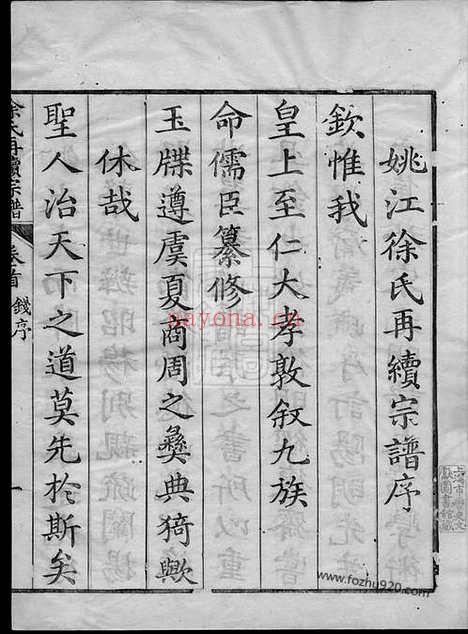 姚江徐氏再續宗譜序
欽惟我
皇上至仁大孝敦敘九族
命儒臣纂修
玉牒遵虞夏商周之彝典猗歟
休哉
聖人治天下之道莫先於斯矣
徐氏再續宗譜
卷首
錢序
一
nayona.cn
www.fozhu920.com